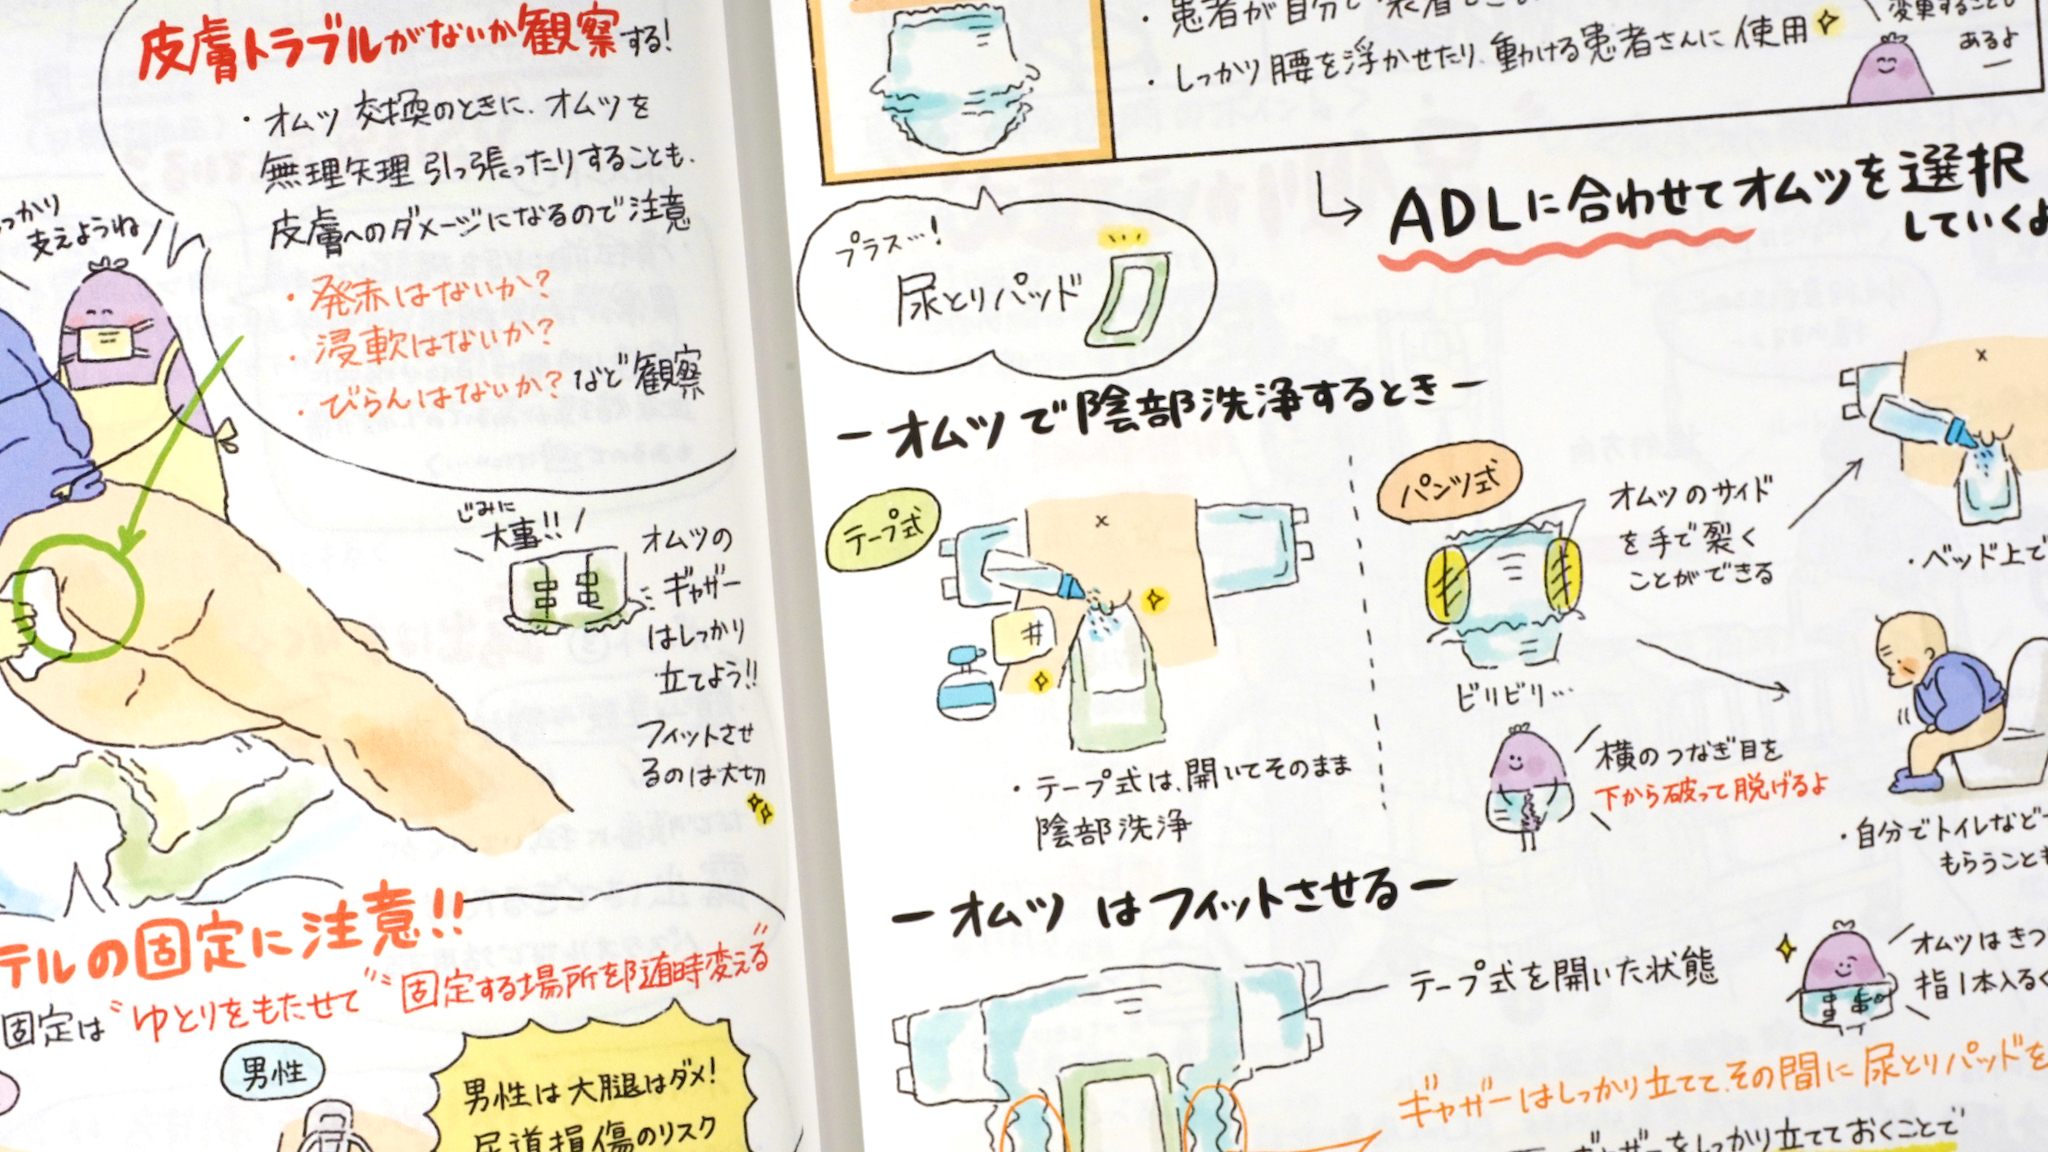 皮膚トラブルがないか観察する!
・オムツ交換のときに、オムツを
無理矢理引っ張ったりすることも、
皮膚へのダメージになるので注意
・発赤はないか?
・浸軟はないか?
・びらんはないか?など観察
支えようね
じみに
大事!!
オムツの
ギャザー
はしっかり
立てよう!!
フィットさせ
るのは大切
テルの固定に注意!!
固定は"ゆとりをもたせて""固定する場所を随時変える"
男性
男性は大腿はダメ!
尿道損傷のリスク
・患者が自分で
・しっかり腰を浮かせたり、動ける患者さんに使用
変更することも
あるよ
ADLに合わせてオムツを選択
していくよ
プラス…!
尿とりパッド
ーオムツで陰部洗浄するときー
テープ式
・テープ式は、開いてそのまま
陰部洗浄
パンツ式
オムツのサイド
を手で裂く
ことができる
ビリビリ…
横のつなぎ目を
下から破って脱げるよ
・ベッド上で
・自分でトイレなど
もらうことも
ーオムツはフィットさせるー
テープ式を開いた状態
オムツはきつ
指1本入るく
ギャザーはしっかり立てて、その間に尿とりパッドを
ギャザーをしっかり立てておくことで